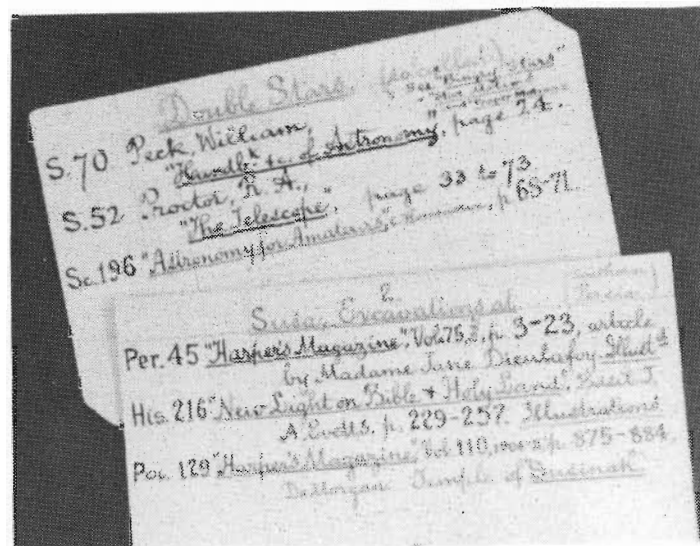 Double Stars. (so called)
See "Binary Stars"
S.70 Peck, William,
"Handbk &c. of Astronomy", page 24.
S.52 Proctor, R. A.,
"The Telescope", page 33 to 73
Sc.196 "Astronomy for Amateurs", p. 65-71
Susa, Excavations at
Per. 45 "Harper's Magazine". Vol. 75, p. 3-23, article
by Madame Jane Dieulafoy. Illustd
His. 216 "New Light on Bible & Holy Land". Basil T.
A. Evetts. p. 229-257. Illustrations
Per. 129 "Harper's Magazine, Vol. 110, p. 875-884,
DeMorgan Temple of Susinak